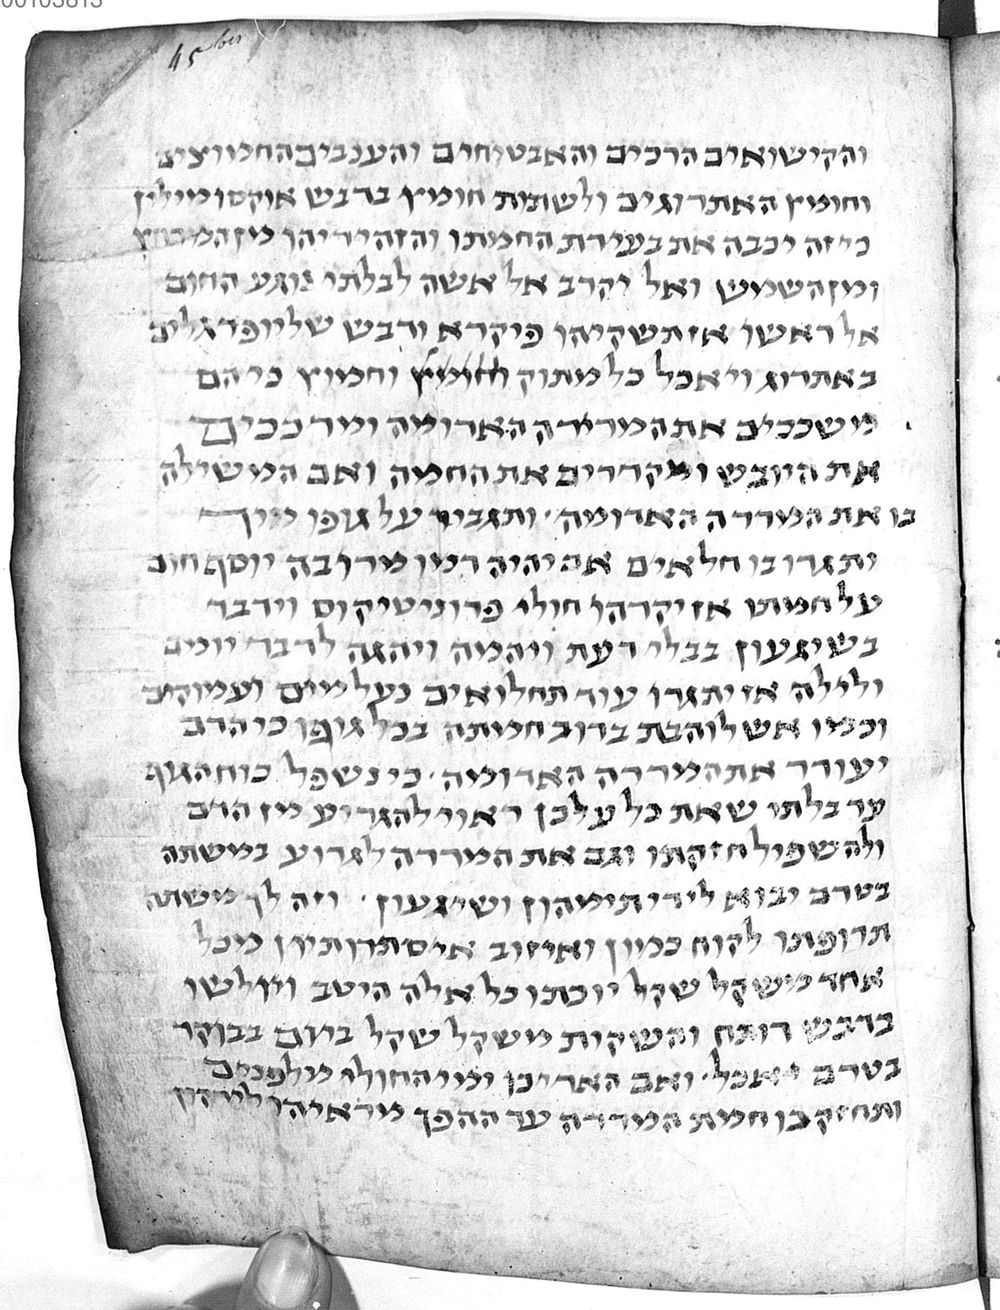 00103813
45 bis
והקישואים הרכים והאבטיחים והענבים החמוצים
וחומץ האתרוגים ולשתות חומץ ברבש אוקסומילין
כי זה יכבה את בעירת החמתו והזהיריהו מן המרחץ
ומן השמש ואל יקרב אל אשה לבלתי נוגע החום
אל ראשו אז תשקיהו פיקרא ודבש שליופדגלים
באתרוג ויאכל כל מתוק וחמוץ כי הם
משככים את המרירה האדומה ומרככים
את היובש ומקררים את החמה ואם המשילה
בו את המררה האדומה ותגביר על גופו
יתגרו בו חלאים אם יהיה דמו מרובה יוסף חום
על חמתו אז יקרהו חולי פרוניטיקוס וידבר
בשיגעון בבלי דעת ויהמה ויהגה לדבר יומם
ולילה אז יתגרו עוד תחלואים נעלמים ועמוקים
וכמו אש לוהבת ברוב חמתה בכל גופו כי הדם
יעורר את המררה האדומה כי נשפל כוח הגוף
עד בלתי שאת כל על כן ראוי להגריע מן הדם
ולהשפיל חזקתו וגם את המררה לגרוע במשתה
בטרם יבוא לידי תימהון ושיגעון וזה לך משתה
תרופתו לקוח כמון ואיזוב איסתרותיון מכל
אחד משקל שקל יוכתו כל אלה היטב ויולשו
ברבש רותח והשקית משקל שקל ביום בבוקר
בטרם יאכל ואם האריכו ימי החולי מילפנים
ותחזק בו חמת המררה עד ההפך מראיהו לירקון